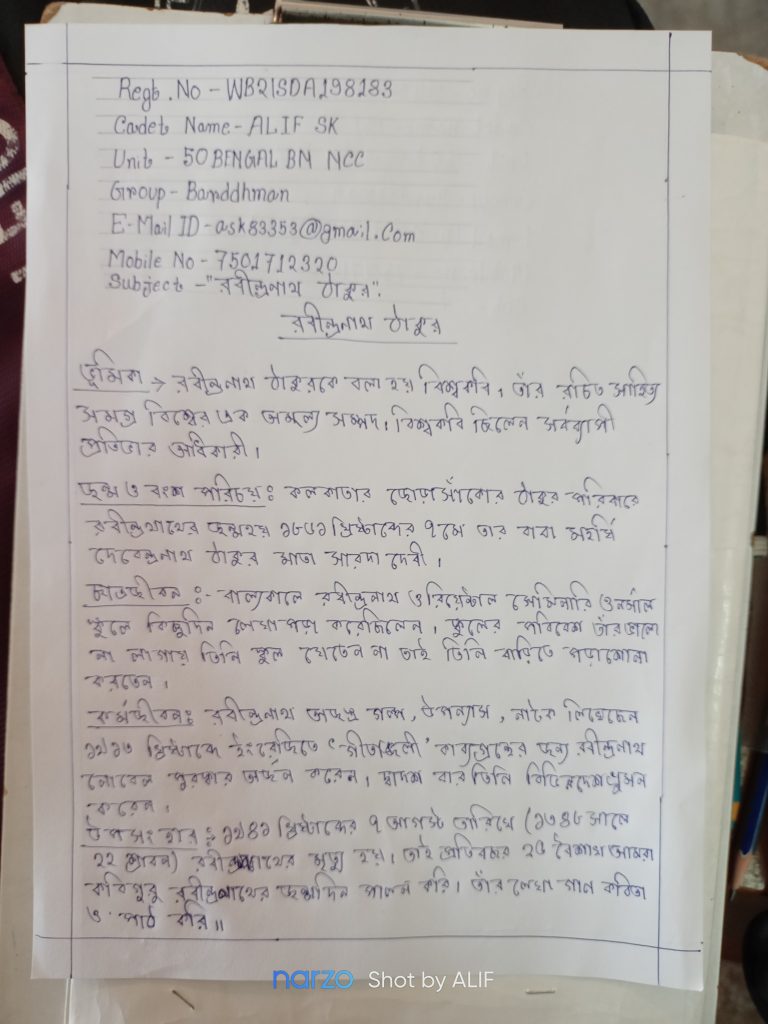 Regt. No - WB21SDA198183
Cadet Name - ALIF SK
Unit - 50 BENGAL BN NCC
Group - Barddhman
E-Mail ID - ask83353@gmail.Com
Mobile No - 7501712320
Subject - "রবীন্দ্রনাথ ঠাকুর".
রবীন্দ্রনাথ ঠাকুর
ভূমিকা → রবীন্দ্রনাথ ঠাকুরকে বলা হয় বিশ্বকবি, তাঁর রচিত সাহিত্য
সমগ্র বিশ্বের এক অমূল্য সম্পদ। বিশ্বকবি ছিলেন সর্বব্যাপী
প্রতিভার অধিকারী।
জন্ম ও বংশ পরিচয়: কলকাতার জোড়াসাঁকোর ঠাকুর পরিবারে
রবীন্দ্রনাথের জন্মহয় ১৮৬১ খ্রিষ্টাব্দের ৭মে তার বাবা মহর্ষি
দেবেন্দ্রনাথ ঠাকুর মাতা সারদা দেবী।
ছাত্রজীবন :- বাল্যকালে রবীন্দ্রনাথ ওরিয়েন্টাল সেমিনারি ও নর্মাল
স্কুলে কিছুদিন লেখাপড়া করেছিলেন। স্কুলের পরিবেশ তাঁর ভালো
না লাগায় তিনি স্কুল যেতেন না তাই তিনি বাড়িতে পড়াশোনা
করতেন।
কর্মজীবন: রবীন্দ্রনাথ অজস্র গল্প, উপন্যাস, নাটক লিখেছেন
১৯১৩ খ্রিষ্টাব্দে ইংরেজিতে 'গীতাঞ্জলী' কাব্যগ্রন্থের জন্য রবীন্দ্রনাথ
নোবেল পুরস্কার অর্জন করেন। দ্বাদশ বার তিনি বিভিন্নদেশ ভ্রমন
করেন।
উপসংহার : ১৯৪১ খ্রিষ্টাব্দের ৭ আগস্ট তারিখে (১৩৪৮ সালে
২২ শ্রাবন) মৃত্যু হয়। তাই প্রতিবছর ২৫ বৈশাখ আমরা
কবিগুরু রবীন্দ্রনাথের জন্মদিন পালন করি। তাঁর লেখা গান কবিতা
ও পাঠ করি॥
narzo Shot by ALIF